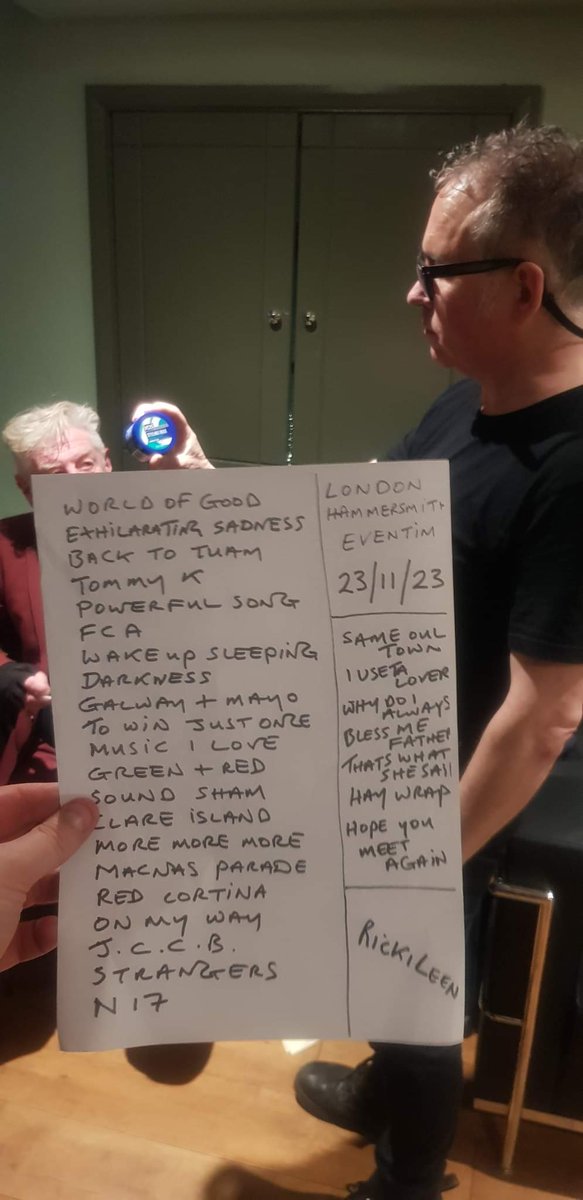 WORLD OF GOOD
EXHILARATING SADNESS
BACK TO TUAM
TOMMY K
POWERFUL SONG
FCA
WAKE UP SLEEPING
DARKNESS
GALWAY + MAYO
TO WIN JUST ONCE
MUSIC I LOVE
GREEN + RED
SOUND SHAM
CLARE ISLAND
MORE MORE MORE
MACNAS PARADE
RED CORTINA
ON MY WAY
J.C.C.B.
STRANGERS
N17
LONDON
HAMMERSMITH
EVENTIM
23/11/23
SAME OUL
TOWN
I USETA
LOVER
WHY DO I
ALWAYS
BLESS ME
FATHER
THATS WHAT
SHE SAID
HAY WRAP
HOPE YOU
MEET
AGAIN
RICKILEEN